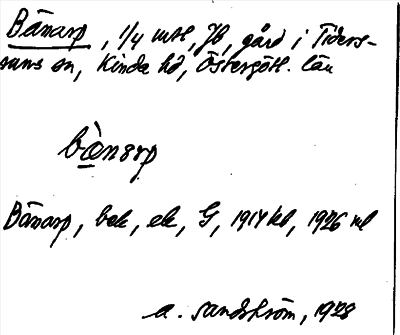 Bänarp, 1/4 mtl, JB, gård i Tiders-
rums sn, Kinda hd, Östergötl. län
bànarp
Bänarp, bek, ek, G, 1917 kb, 1926 ml
A. Sandström, 1928